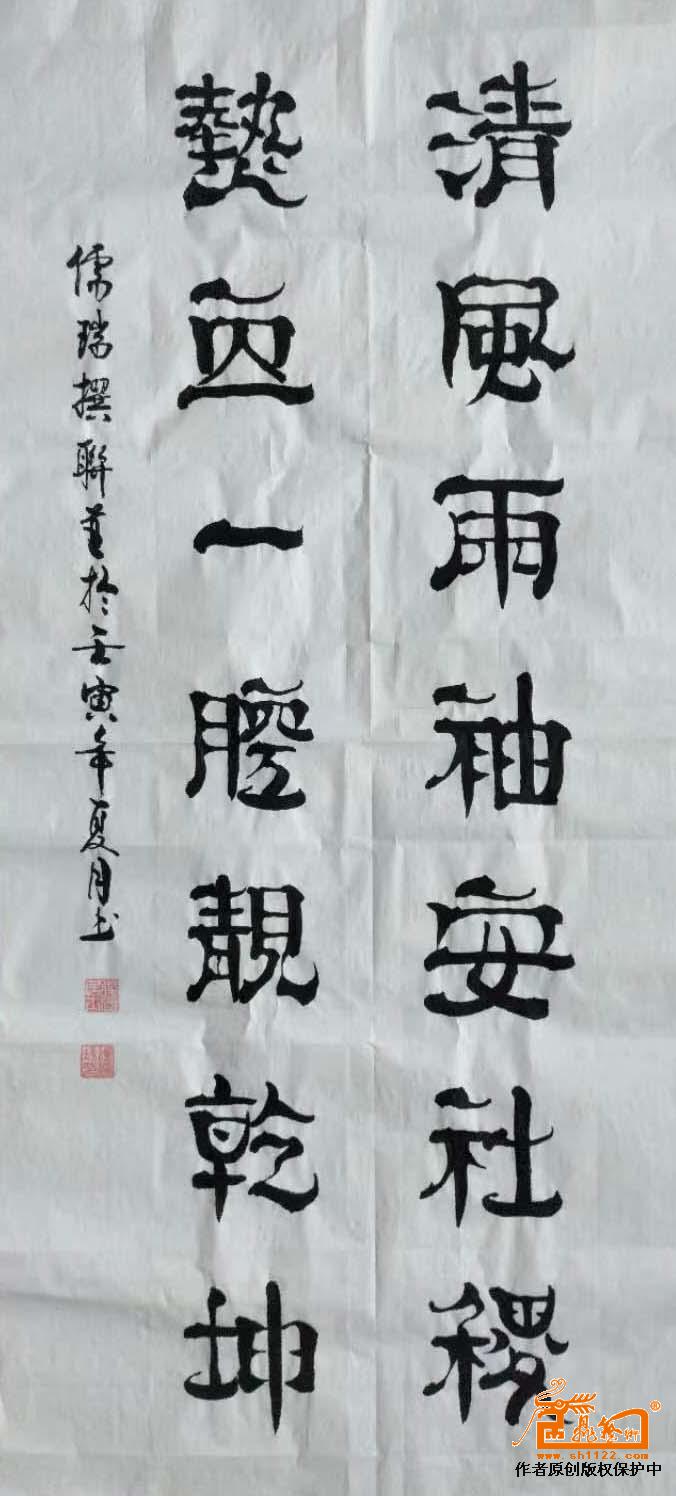 清風兩袖安社稷
熱血一腔靚乾坤
儒瑞撰聯並於壬寅年夏月书
www.sh1122.com
作者原创版权保护中